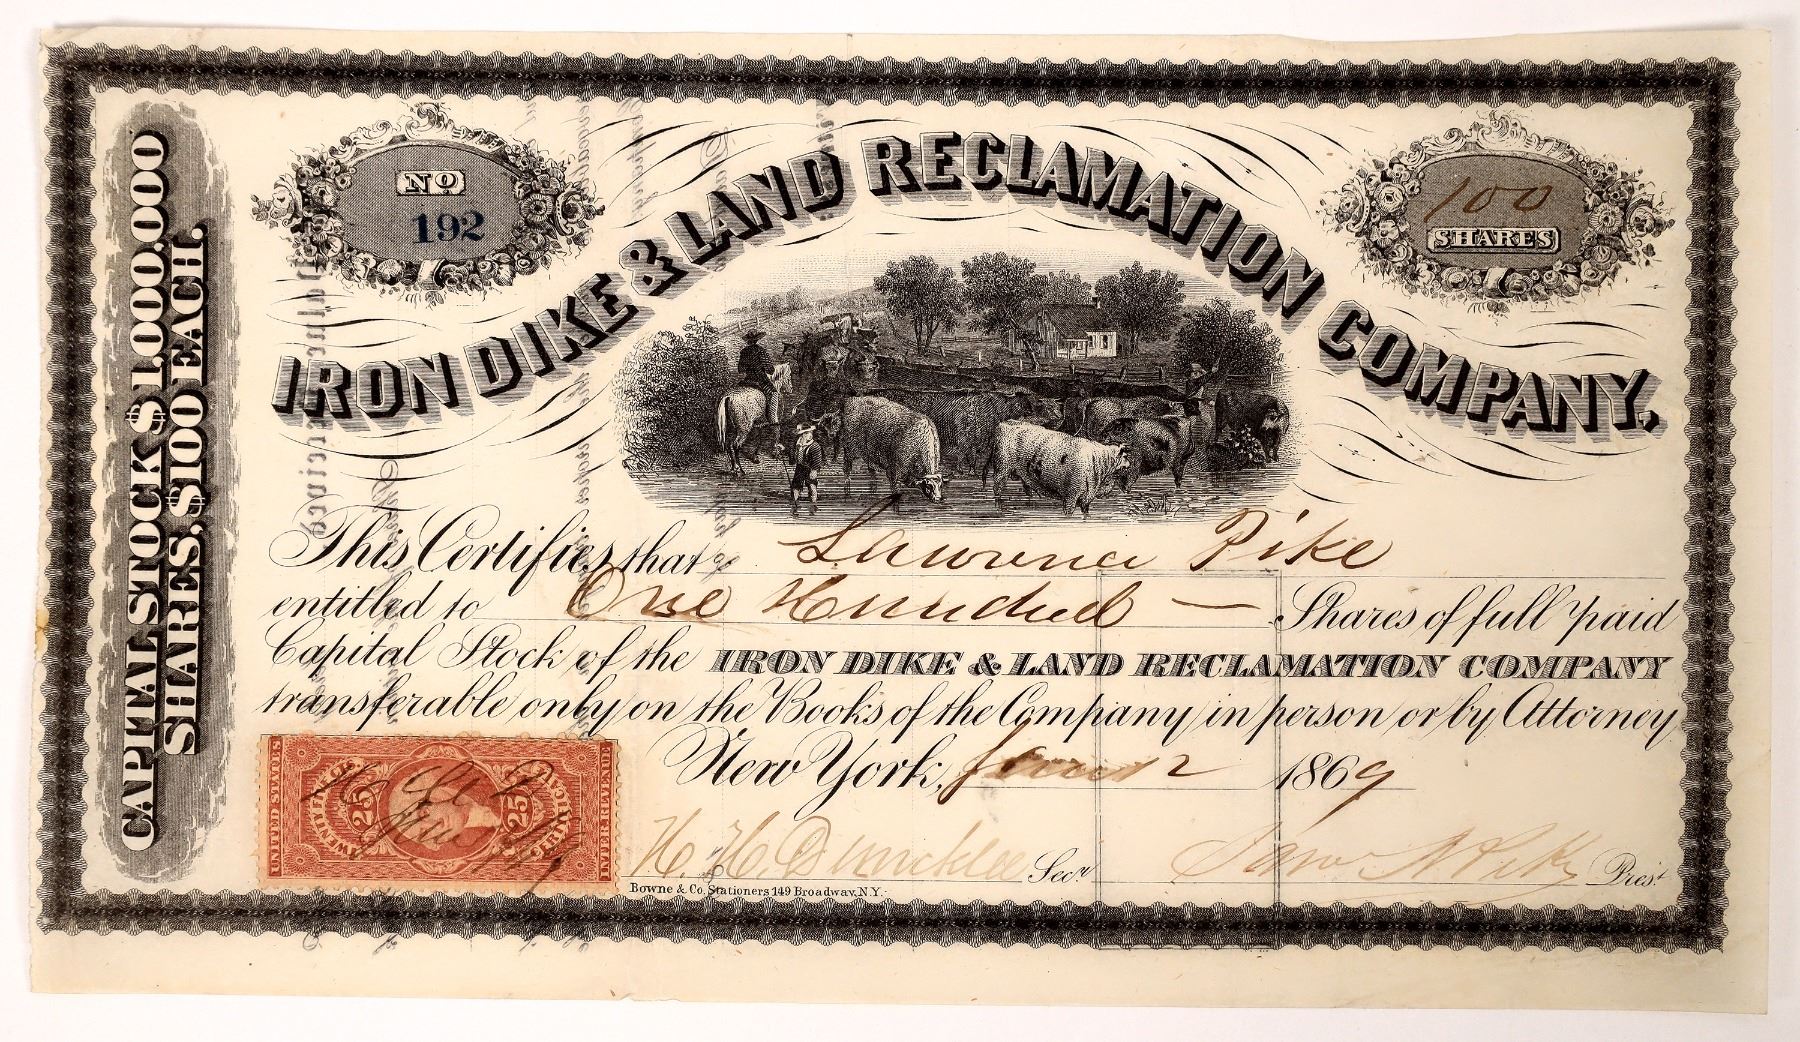 No
192
IRON DIKE & LAND RECLAMATION COMPANY.
100
SHARES
CAPITAL STOCK $1,000.000
SHARES, $100 EACH.
This Certifies that Lawrence Pike
entitled to One Hundred — Shares of full paid
Capital Stock of the IRON DIKE & LAND RECLAMATION COMPANY
transferable only on the Books of the Company in person or by Attorney
New York, June 12 1869
UNITED STATES
INTER. REVENUE
TWENTY FIVE CTS.
25
25
H. H. Duncklee Secy.
Pres.t
Bowne & Co. Stationers 149 Broadway, N.Y.